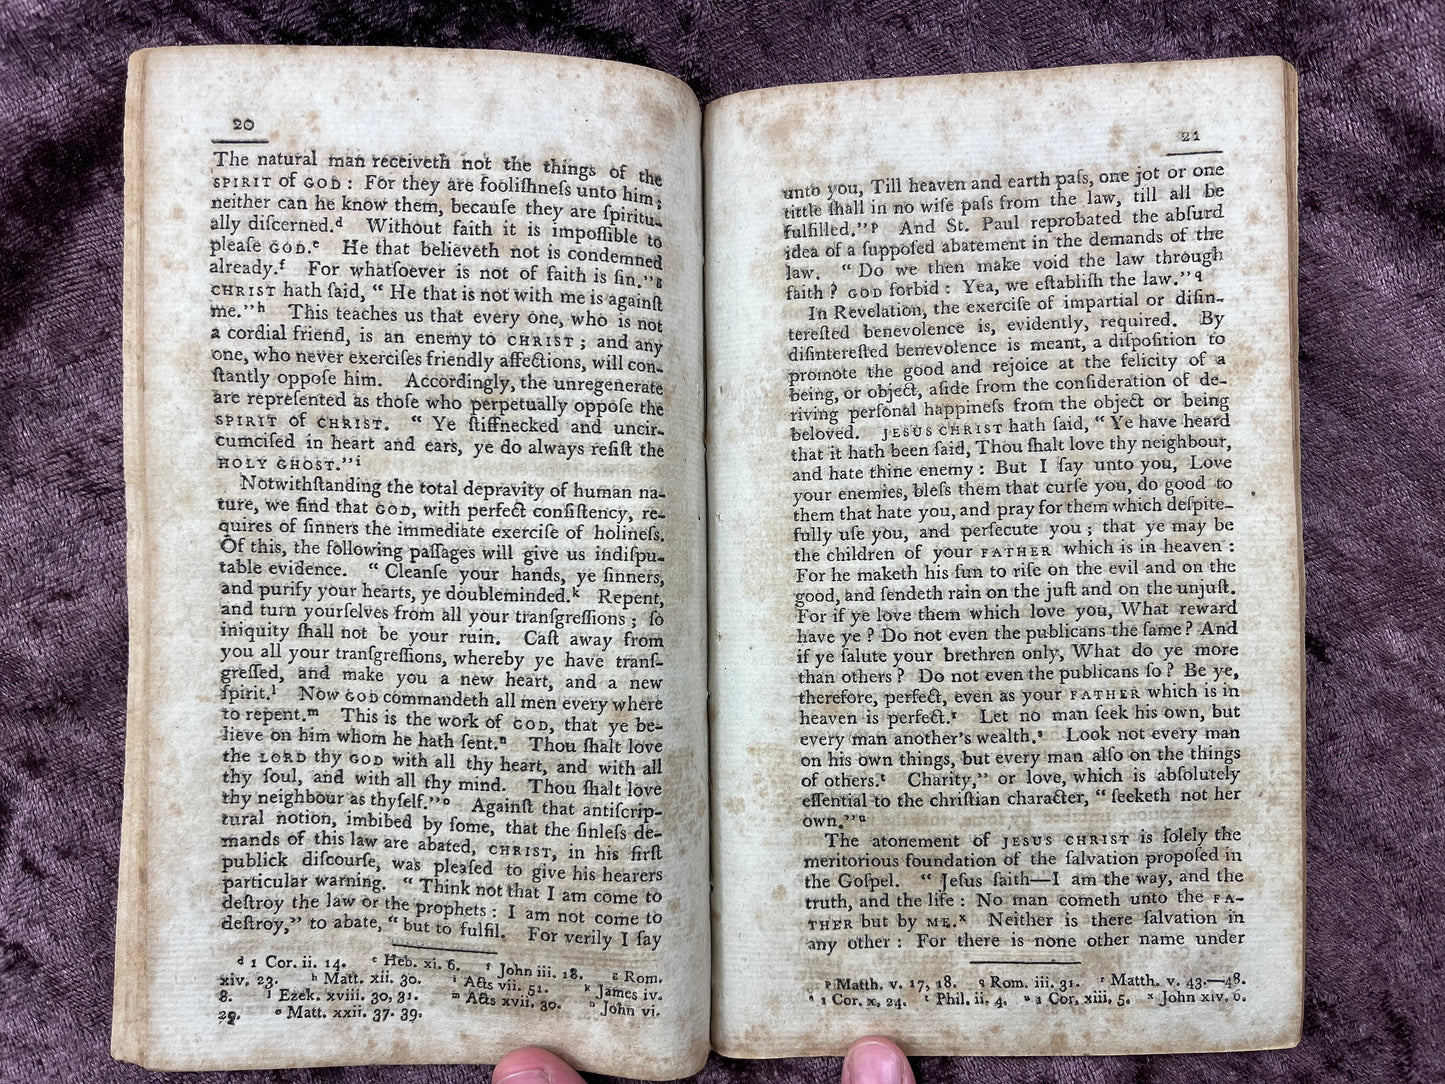 20
The natural man receiveth not the things of the
SPIRIT of GOD : For they are fooliſhneſs unto him ;
neither can he know them, becauſe they are ſpiritu-
ally diſcerned.ᵈ Without faith it is impoſſible to
pleaſe GOD.ᵉ He that believeth not is condemned
already.ᶠ For whatſoever is not of faith is ſin."ᵍ
CHRIST hath ſaid, " He that is not with me is againſt
me."ʰ This teaches us that every one, who is not
a cordial friend, is an enemy to CHRIST ; and any
one, who never exerciſes friendly affections, will con-
ſtantly oppoſe him. Accordingly, the unregenerate
are repreſented as thoſe who perpetually oppoſe the
SPIRIT of CHRIST. " Ye ſtiffnecked and uncir-
cumciſed in heart and ears, ye do always reſiſt the
HOLY GHOST."ⁱ
Notwithſtanding the total depravity of human na-
ture, we find that GOD, with perfect conſiſtency, re-
quires of ſinners the immediate exerciſe of holineſs.
Of this, the following paſſages will give us indiſpu-
table evidence. " Cleanſe your hands, ye ſinners,
and purify your hearts, ye doubleminded.ᵏ Repent,
and turn yourſelves from all your tranſgreſſions ; ſo
iniquity ſhall not be your ruin. Caſt away from
you all your tranſgreſſions, whereby ye have tranſ-
greſſed, and make you a new heart, and a new
ſpirit.ˡ Now GOD commandeth all men every where
to repent.ᵐ This is the work of GOD, that ye be-
lieve on him whom he hath ſent.ⁿ Thou ſhalt love
the LORD thy GOD with all thy heart, and with all
thy ſoul, and with all thy mind. Thou ſhalt love
thy neighbour as thyſelf."ᵒ Againſt that antiſcrip-
tural notion, imbibed by ſome, that the ſinleſs de-
mands of this law are abated, CHRIST, in his firſt
publick diſcourſe, was pleaſed to give his hearers
particular warning. " Think not that I am come to
deſtroy the law or the prophets : I am not come to
deſtroy," to abate, " but to fulfil. For verily I ſay
ᵈ 1 Cor. ii. 14. ᵉ Heb. xi. 6. ᶠ John iii. 18. ᵍ Rom.
xiv. 23. ʰ Matt. xii. 30. ⁱ Acts vii. 51. ᵏ James iv.
8. ˡ Ezek. xviii. 30, 31. ᵐ Acts xvii. 30. ⁿ John vi.
29. ᵒ Matt. xxii. 37. 39.
21
unto you, Till heaven and earth paſs, one jot or one
tittle ſhall in no wiſe paſs from the law, till all be
fulfilled."ᵖ And St. Paul reprobated the abſurd
idea of a ſuppoſed abatement in the demands of the
law. " Do we then make void the law through
faith ? GOD forbid : Yea, we eſtabliſh the law."q
In Revelation, the exerciſe of impartial or diſin-
tereſted benevolence is, evidently, required. By
diſintereſted benevolence is meant, a diſpoſition to
promote the good and rejoice at the felicity of a
being, or object, aſide from the conſideration of de-
riving perſonal happineſs from the object or being
beloved. JESUS CHRIST hath ſaid, " Ye have heard
that it hath been ſaid, Thou ſhalt love thy neighbour,
and hate thine enemy : But I ſay unto you, Love
your enemies, bleſs them that curſe you, do good to
them that hate you, and pray for them which deſpite-
fully uſe you, and perſecute you ; that ye may be
the children of your FATHER which is in heaven :
For he maketh his ſun to riſe on the evil and on the
good, and ſendeth rain on the juſt and on the unjuſt.
For if ye love them which love you, What reward
have ye ? Do not even the publicans the ſame ? And
if ye ſalute your brethren only, What do ye more
than others ? Do not even the publicans ſo ? Be ye,
therefore, perfect, even as your FATHER which is in
heaven is perfect.ʳ Let no man ſeek his own, but
every man another's wealth.ˢ Look not every man
on his own things, but every man alſo on the things
of others.ᵗ Charity," or love, which is abſolutely
eſſential to the chriſtian character, " ſeeketh not her
own."ᵘ
The atonement of JESUS CHRIST is ſolely the
meritorious foundation of the ſalvation propoſed in
the Goſpel. " Jeſus ſaith—I am the way, and the
truth, and the life : No man cometh unto the FA-
THER but by ME.ˣ Neither is there ſalvation in
any other : For there is none other name under
ᵖ Matth. v. 17, 18. q Rom. iii. 31. ʳ Matth. v. 43.—48.
ˢ 1 Cor. x. 24. ᵗ Phil. ii. 4. ᵘ 1 Cor. xiii. 5. ˣ John xiv. 6.